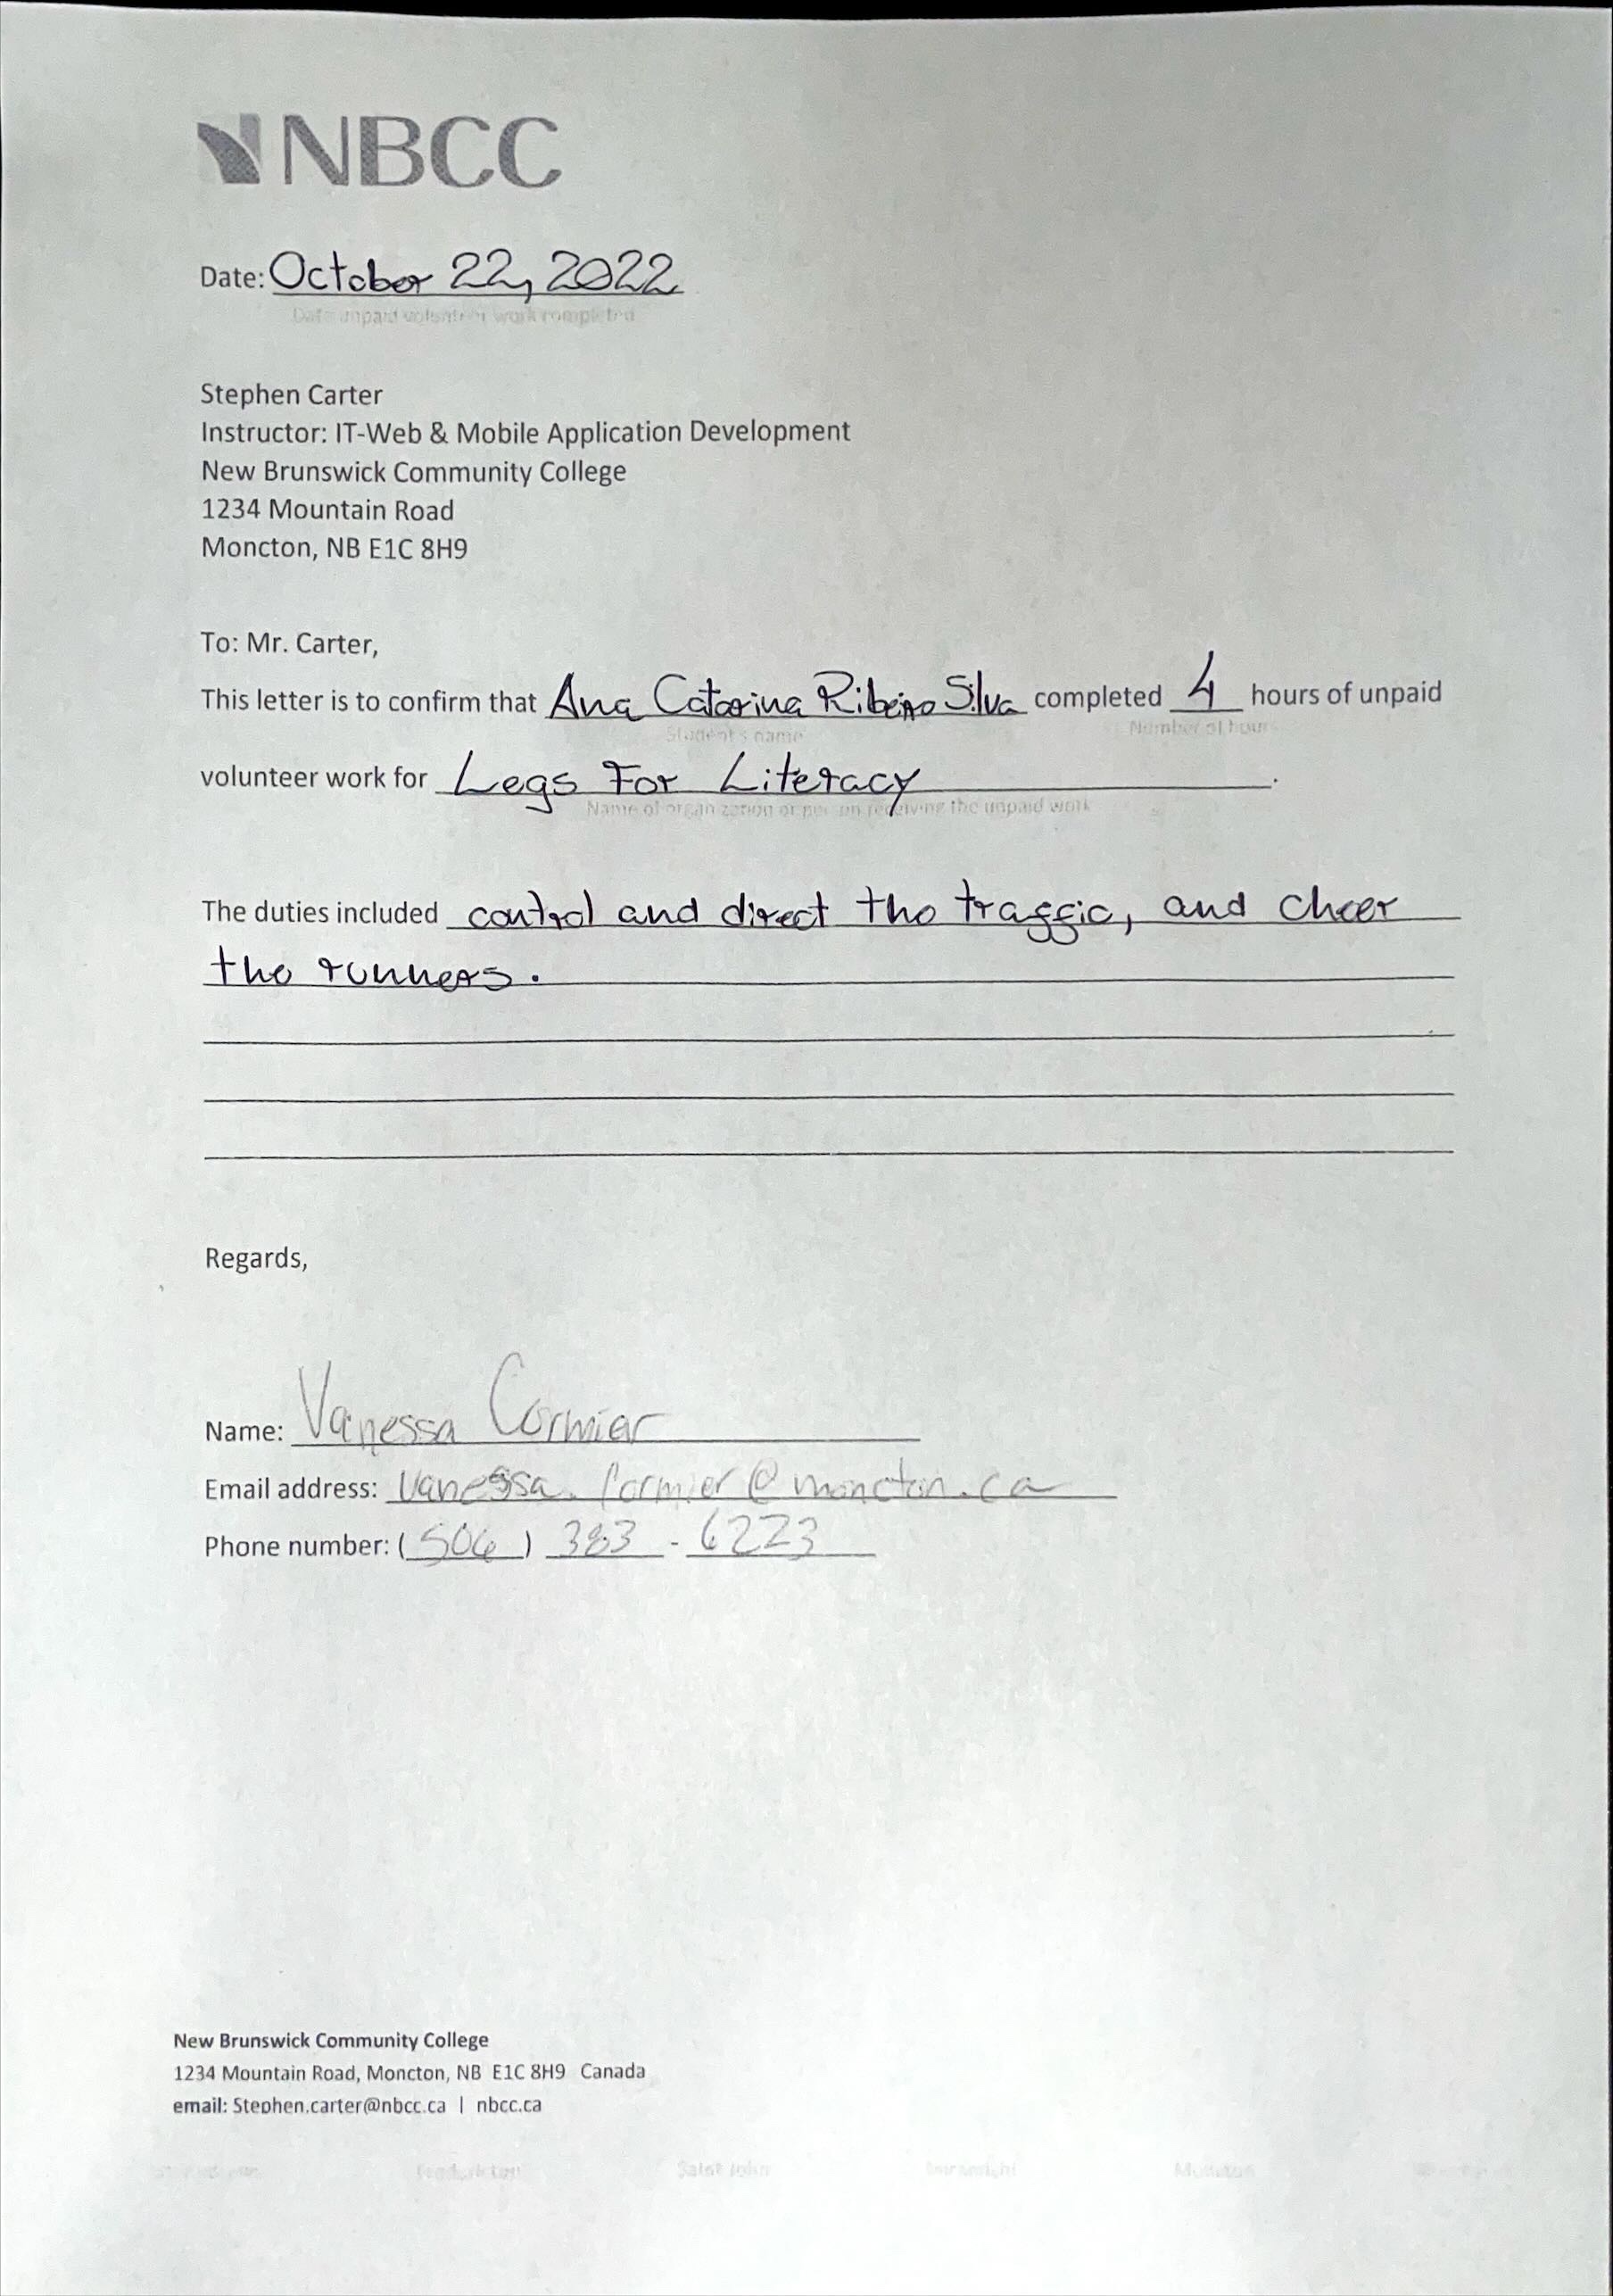 NBCC
Date: October 22, 2022
Date unpaid volunteer work completed
Stephen Carter
Instructor: IT-Web & Mobile Application Development
New Brunswick Community College
1234 Mountain Road
Moncton, NB E1C 8H9
To: Mr. Carter,
This letter is to confirm that Ana Catarina Ribeiro Silva completed 4 hours of unpaid
Student's name Number of hours
volunteer work for Legs For Literacy.
Name of organization or person receiving the unpaid work
The duties included control and direct the traffic, and cheer
the runners.
Regards,
Name: Vanessa Cormier
Email address: vanessa.cormier@moncton.ca
Phone number: (506) 383 - 6223
New Brunswick Community College
1234 Mountain Road, Moncton, NB E1C 8H9 Canada
email: Stephen.carter@nbcc.ca | nbcc.ca
Fredericton Saint John Miramichi Moncton